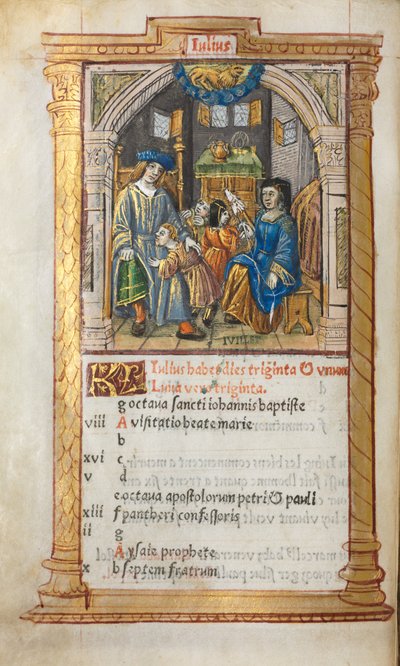 Iulius
IVILLET
KL Iulius habet dies triginta & vnum
Luna vero triginta.
g octaua sancti iohannis baptiste
viii A visitatio beate marie
b
xvi c
v d
e octaua apostolorum petri & pauli
xiii f pantheri confessoris
ii g
A ysaie prophete
x b septem fratrum